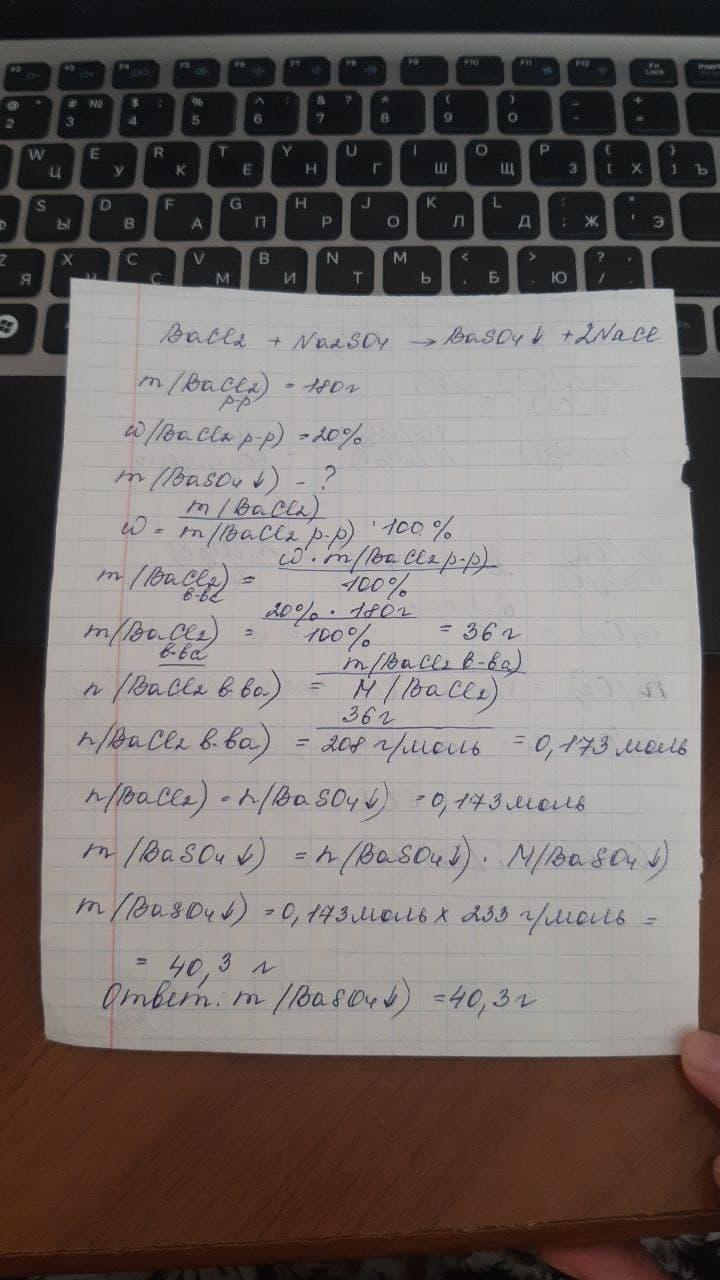 F2 F3 F4 F5 F6 F7 F8 F9 F10 F11 F12 Fn Lock Insert
@ " 2 # № 3 $ ; 4 % 5 ^ : 6 & ? 7 * 8 ( 9 ) 0 _ - + =
W Ц E У R К T Е Y Н U Г I Ш O Щ P З { [ Х } ] Ъ
S Ы D В F А G П H Р J О K Л L Д : ; Ж " ' Э
Z Я X C С V М B И N Т M Ь < , Б > . Ю ? / , .
BaCl2 + Na2SO4 → BaSO4↓ + 2NaCl
m/BaCl2) = 180г
р-р
ω/BaCl2 р-р) = 20%
m/BaSO4↓) - ?
m/BaCl2)
ω = m/BaCl2 р-р) · 100%
ω · m/BaCl2 р-р)
m/BaCl2) = 100%
в-ва
20% · 180г
m/BaCl2) = 100% = 36 г
в-ва
m/BaCl2 в-ва)
n/BaCl2 в-ва) = M/BaCl2)
36г
n/BaCl2 в-ва) = 208 г/моль = 0,173 моль
n/BaCl2) = n/BaSO4↓) = 0,173 моль
m/BaSO4↓) = n/BaSO4↓) · M/BaSO4↓)
m/BaSO4↓) = 0,173 моль x 233 г/моль =
= 40,3 г
Ответ: m/BaSO4↓) = 40,3 г